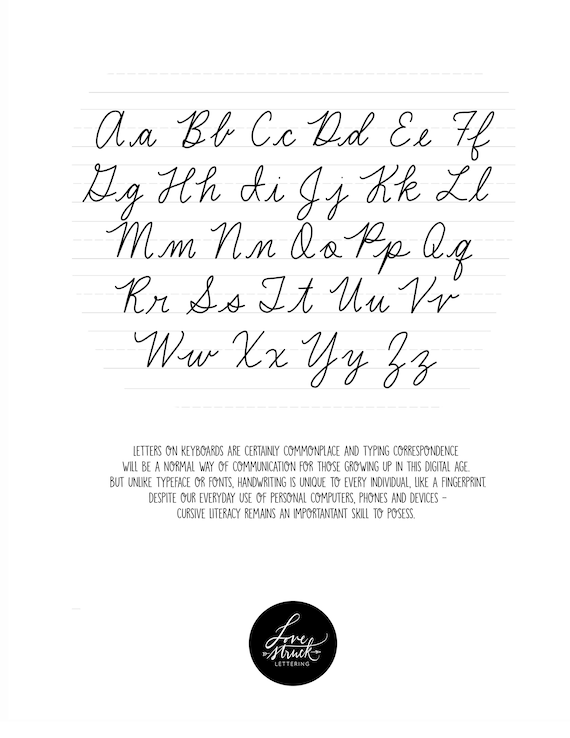 Aa Bb Cc Dd Ee Ff
Gg Hh Ii Jj Kk Ll
Mm Nn Oo Pp Qq
Rr Ss Tt Uu Vv
Ww Xx Yy Zz
LETTERS ON KEYBOARDS ARE CERTAINLY COMMONPLACE AND TYPING CORRESPONDENCE
WILL BE A NORMAL WAY OF COMMUNICATION FOR THOSE GROWING UP IN THIS DIGITAL AGE.
BUT UNLIKE TYPEFACE OR FONTS, HANDWRITING IS UNIQUE TO EVERY INDIVIDUAL, LIKE A FINGERPRINT.
DESPITE OUR EVERYDAY USE OF PERSONAL COMPUTERS, PHONES AND DEVICES –
CURSIVE LITERACY REMAINS AN IMPORTANTANT SKILL TO POSESS.
Love
Struck
LETTERING